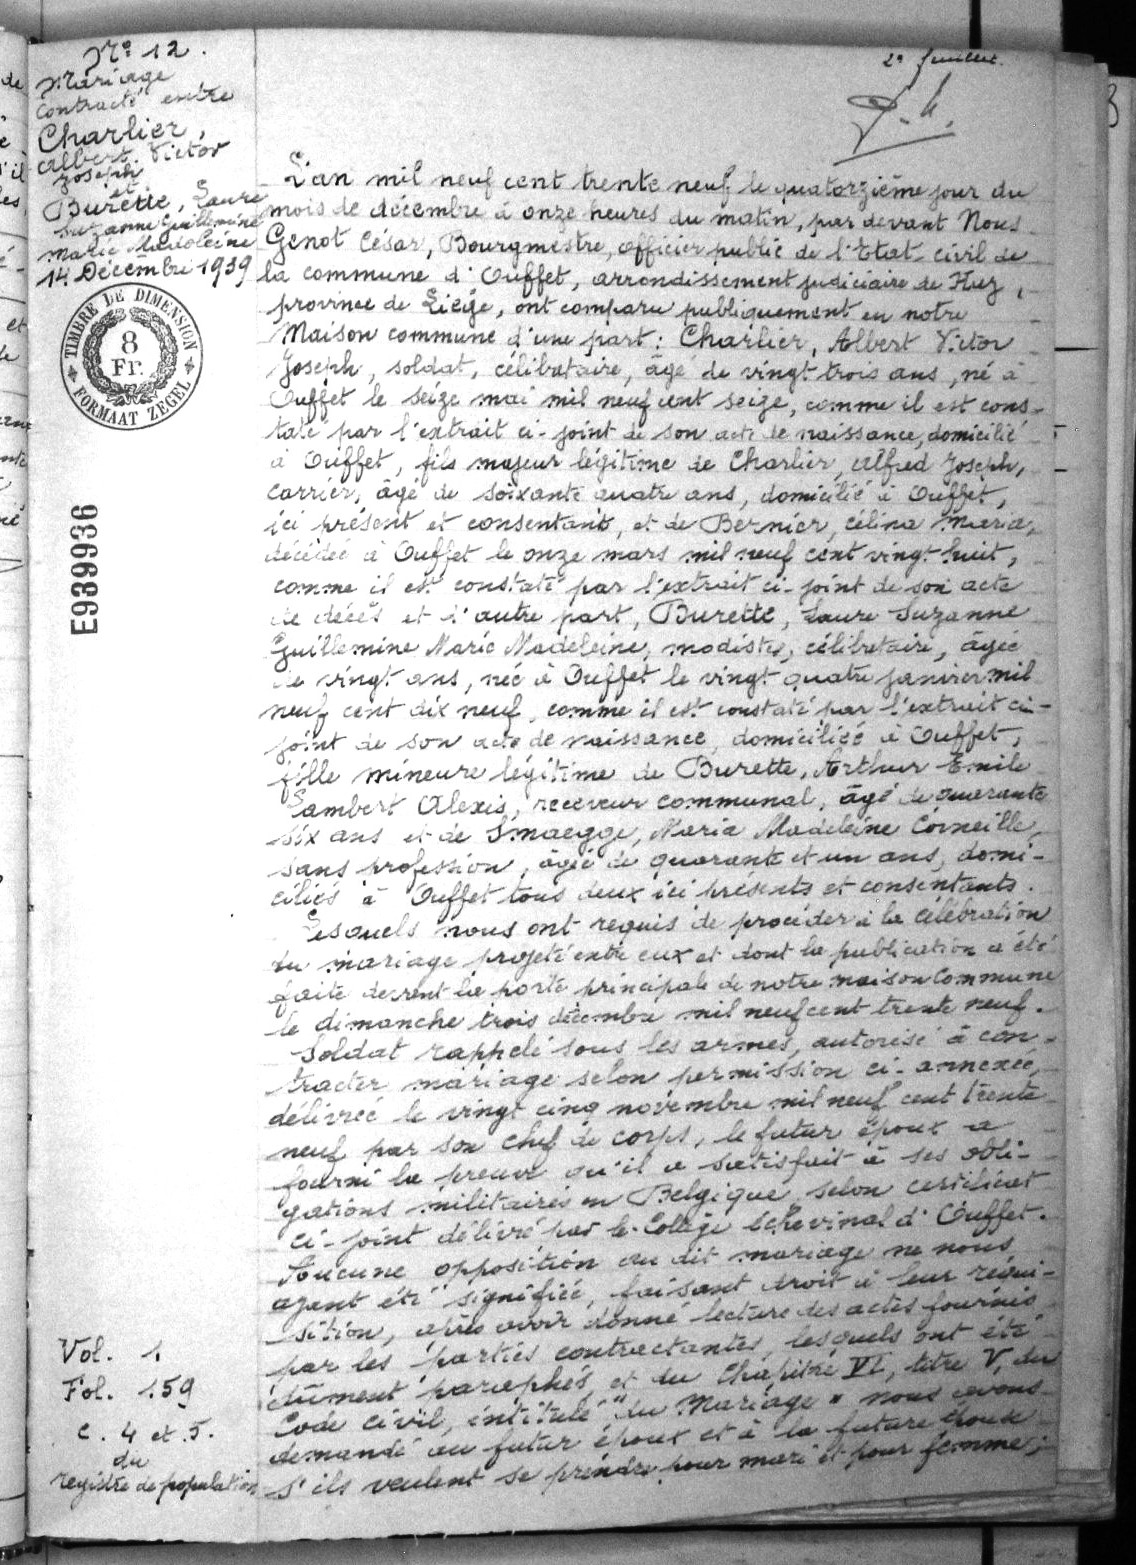 N° 12.
Mariage
contracté entre
Charlier,
Albert Victor
Joseph
et
Burette, Laure
Suzanne Guillemine
Marie Madeleine
14 Décembre 1939
TIMBRE DE DIMENSION
8
Fr.
FORMAAT ZEGEL
E939936
Vol. 1.
Fol. 159
C. 4 et 5.
du
registre de population
2e feuillet.
L'an mil neuf cent trente neuf le quatorzième jour du
mois de décembre à onze heures du matin, par devant Nous
Genot César, Bourgmestre, officier public de l'Etat-civil de
la commune d'Ouffet, arrondissement judiciaire de Huy,
province de Liège, ont comparu publiquement en notre
Maison commune d'une part: Charlier, Albert Victor
Joseph, soldat, célibataire, âgé de vingt trois ans, né à
Ouffet le seize mai mil neuf cent seize, comme il est cons-
taté par l'extrait ci-joint de son acte de naissance, domicilié
à Ouffet, fils majeur légitime de Charlier, Alfred Joseph,
carrier, âgé de soixante quatre ans, domicilié à Ouffet,
ici présent et consentant, et de Bernier, Célina Maria,
décédée à Ouffet le onze mars mil neuf cent vingt huit,
comme il est constaté par l'extrait ci-joint de son acte
de décès et d'autre part, Burette, Laure Suzanne
Guillemine Marie Madeleine, modiste, célibataire, âgée
de vingt ans, née à Ouffet le vingt quatre janvier mil
neuf cent dix neuf, comme il est constaté par l'extrait ci-
joint de son acte de naissance, domiciliée à Ouffet,
fille mineure légitime de Burette, Arthur Emile
Lambert Alexis, receveur communal, âgé de quarante
six ans et de Smaegge, Maria Madeleine Corneille,
sans profession, âgée de quarante et un ans, domi-
ciliés à Ouffet tous deux ici présents et consentants.
Lesquels nous ont requis de procéder à la célébration
du mariage projeté entre eux et dont la publication a été
faite devant la porte principale de notre maison commune
le dimanche trois décembre mil neuf cent trente neuf.
Soldat rappelé sous les armes, autorisé à con-
tracter mariage selon permission ci-annexée,
délivrée le vingt cinq novembre mil neuf cent trente
neuf par son chef de corps, le futur époux a
fourni la preuve qu'il a satisfait à ses obli-
gations militaires en Belgique selon certificat
ci-joint délivré par le Collège Echevinal d'Ouffet.
Aucune opposition au dit mariage ne nous
ayant été signifiée, faisant droit à leur réqui-
sition, après avoir donné lecture des actes fournis
par les parties contractantes, lesquels ont été
dûment paraphés, et du Chapitre VI, titre V, du
Code civil, intitulé "du Mariage" nous avons
demandé au futur époux et à la future épouse
s'ils veulent se prendre pour mari et pour femme;